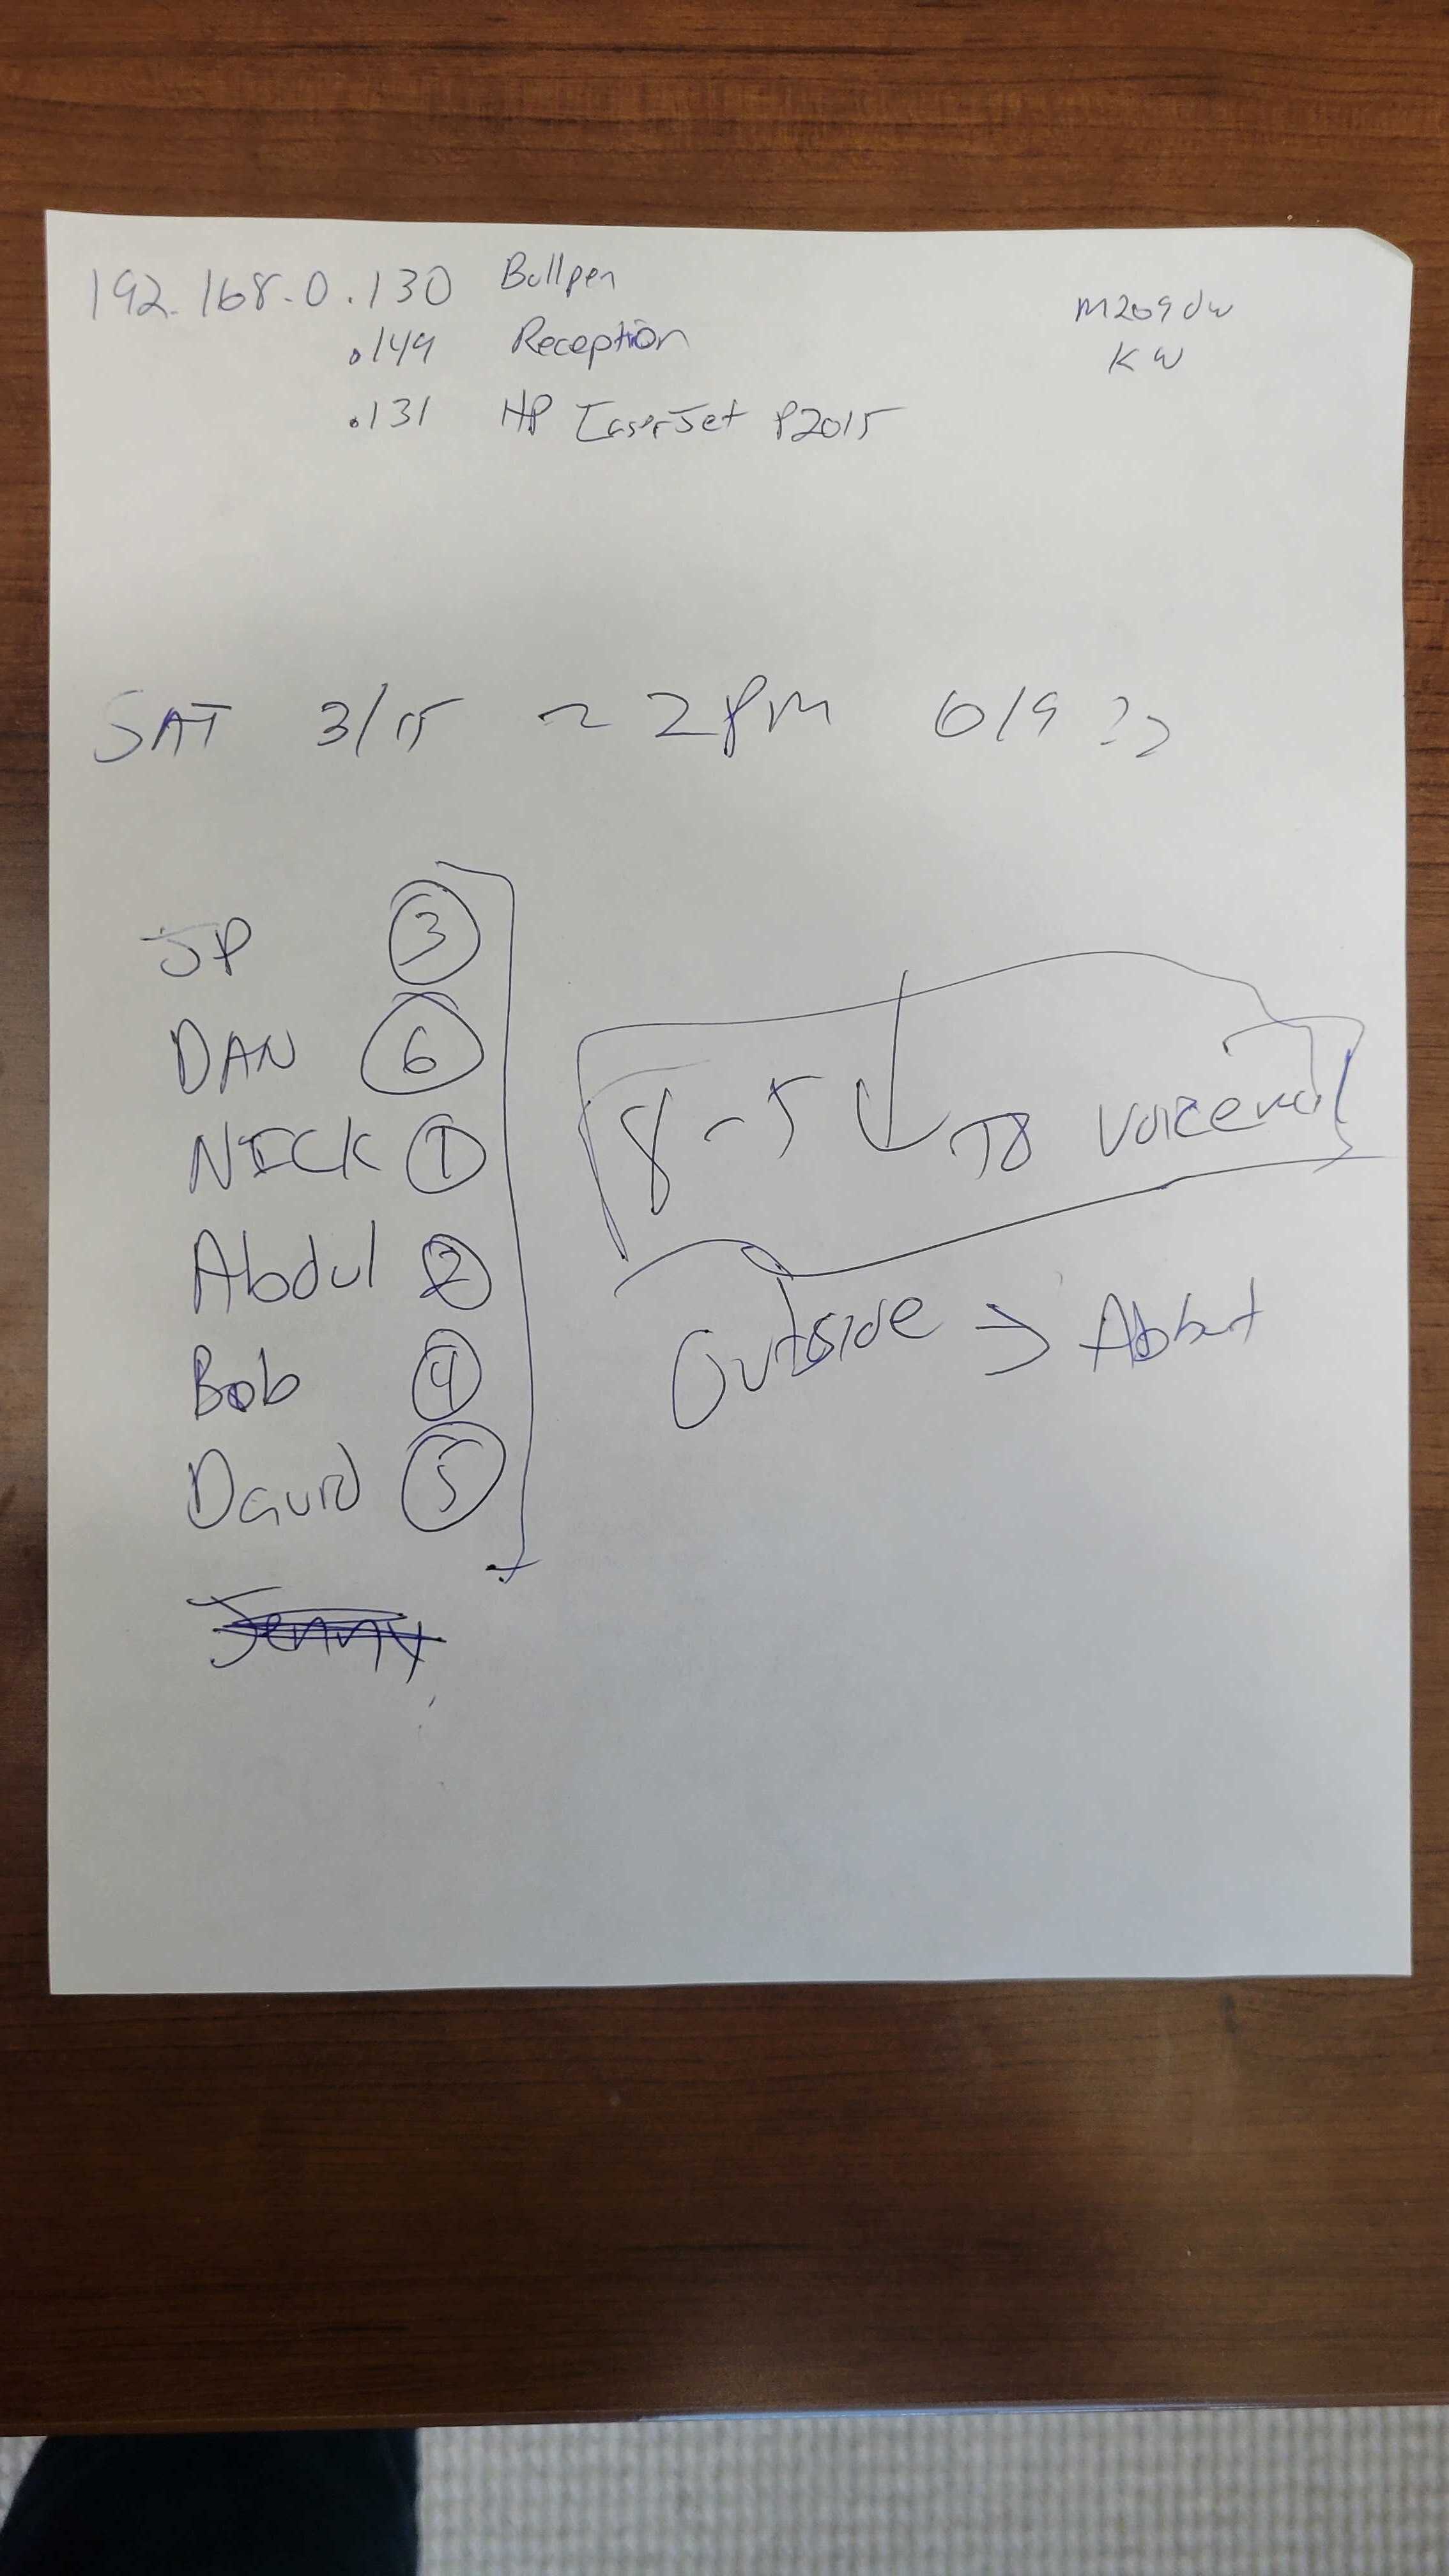 192.168.0.130 Bullpen
.149 Reception
.131 HP LaserJet P2015
M209dw
KW
SAT 3/15 ~ 2PM 6/9 ??
JP 3
DAN 6
NICK 1
Abdul 2
Bob 4
David 5
Jenny
8-5 ↓ TO voicemail
Outside → Abbot